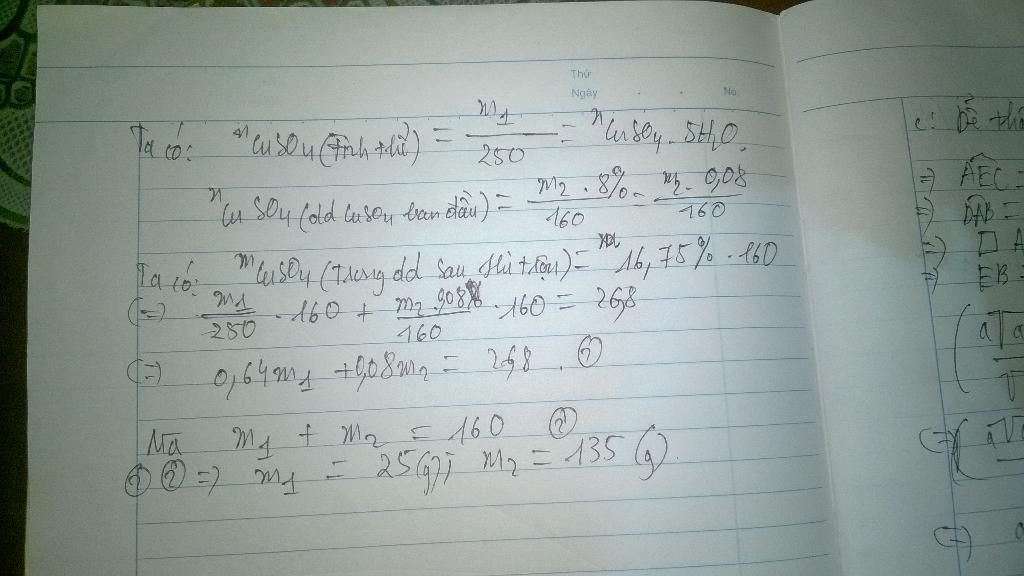 Thứ
Ngày No.
Ta có: nCuSO4 (tinh thể) = m1/250 = nCuSO4.5H2O.
nCuSO4 (dd CuSO4 ban đầu) = m2 . 8%/160 = m2 . 0,08/160
Ta có: mCuSO4 (trong dd sau khi trộn) = 16,75% . 160
(=) m1/250 . 160 + m2 . 0,08/160 . 160 = 26,8
(=) 0,64m1 + 0,08m2 = 26,8. ①
Mà m1 + m2 = 160 ②
① ② => m1 = 25(g); m2 = 135 (g).
c: Dễ thấ
=) AEC =
=) DAB =
=)
=) EB =